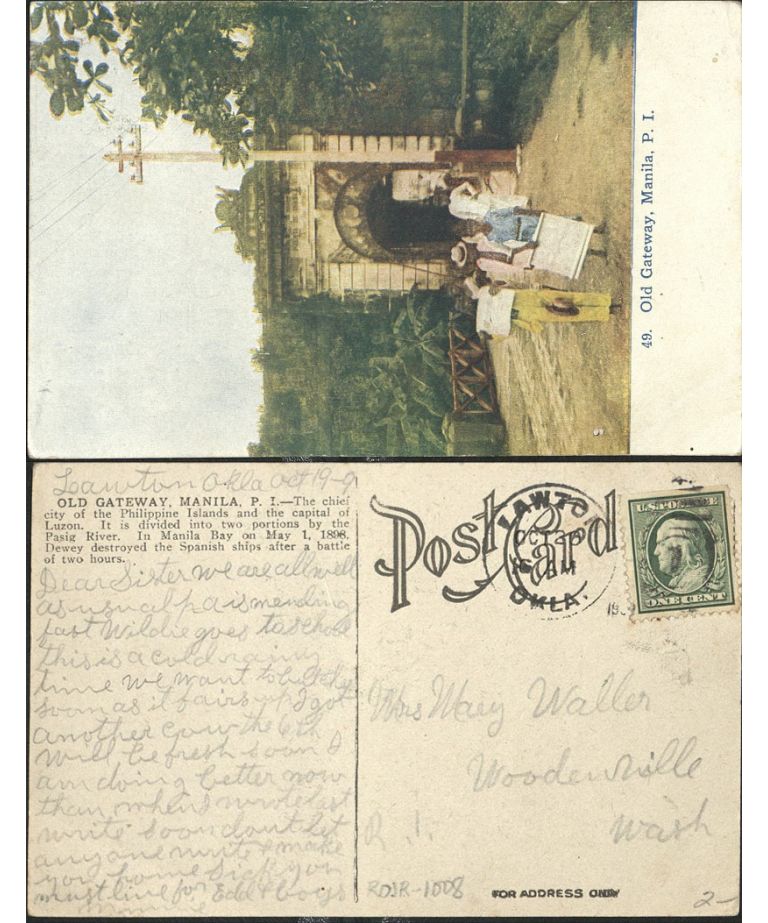 49. Old Gateway, Manila, P. I.
Lawton Okla Oct 19-9
OLD GATEWAY, MANILA, P. I.—The chief
city of the Philippine Islands and the capital of
Luzon. It is divided into two portions by the
Pasig River. In Manila Bay on May 1, 1898,
Dewey destroyed the Spanish ships after a battle
of two hours.
Dear Sister we are all well
as usual pa is mending
fast Wildie goes to schole
this is a cold rainy
time we want to
soon as it fairs up I got
another cow the 6th
will be fresh soon I
am doing better now
than when I wrote last
write soon dont let
anyone write & make
you home sick you
must live for Edd & boys
Post Card
LAWTON
OCT 20
AM
OKLA.
U.S. POSTAGE
ONE CENT
Mrs Mary Waller
Woodenville
Wash
R. 1.
ROJR-1008
FOR ADDRESS ONLY
2-